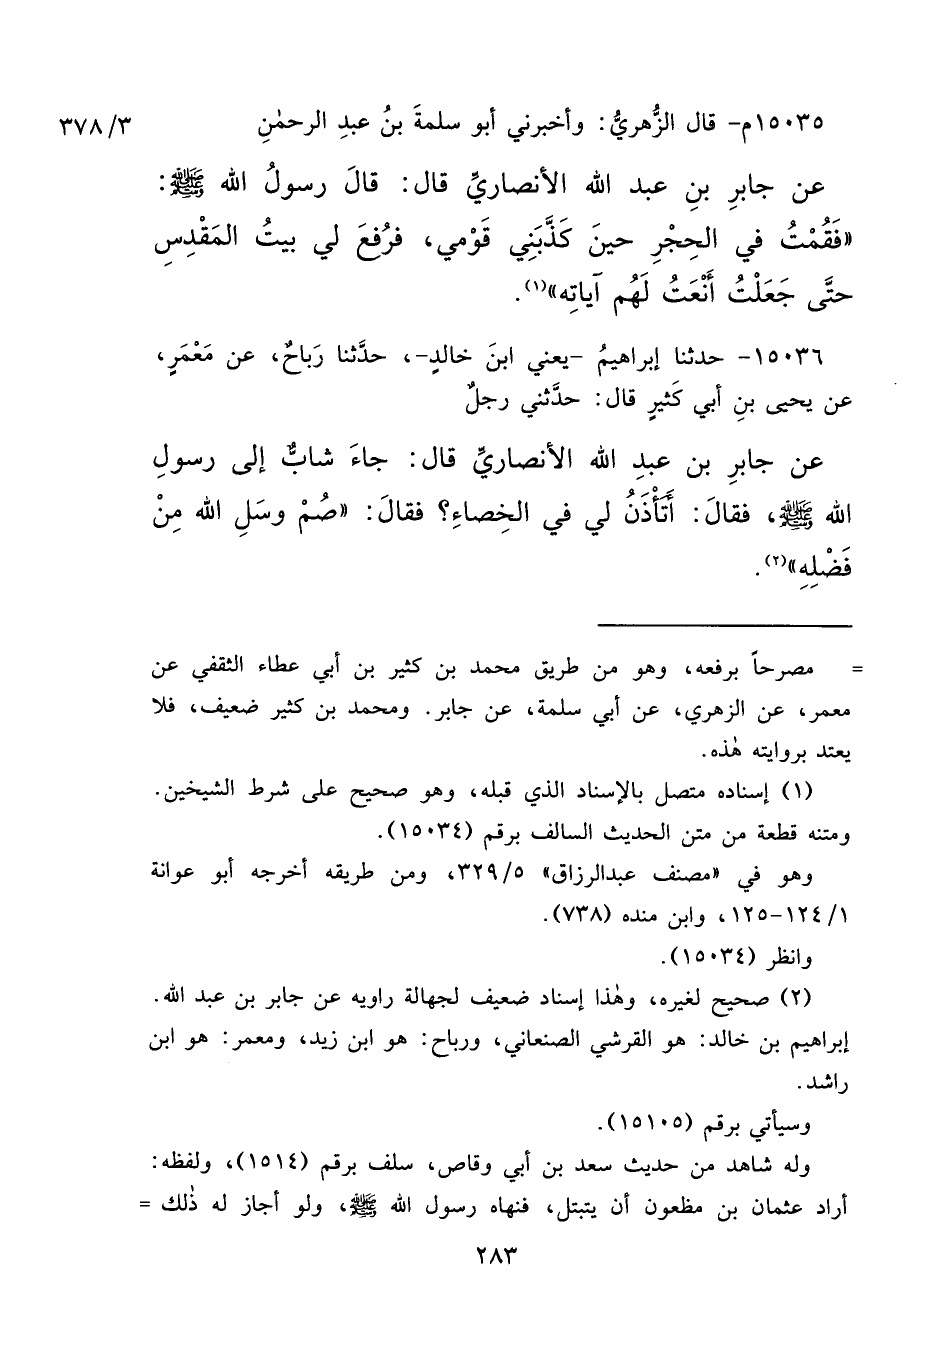 ١٥٠٣٥م- قال الزُّهريُّ: وأخبرني أبو سلمةَ بنُ عبدِ الرحمٰنِ ٣٧٨/٣
عن جابرِ بنِ عبد الله الأنصاريِّ قال: قالَ رسولُ الله ﷺ:
«فَقُمْتُ في الحِجْرِ حينَ كَذَّبَنِي قَوْمي، فرُفِعَ لي بيتُ المَقْدِسِ
حتَّى جَعَلْتُ أَنْعَتُ لَهُم آياتِه»(١).
١٥٠٣٦- حدثنا إبراهيمُ -يعني ابنَ خالدٍ-، حدَّثنا رَباحٌ، عن مَعْمَرٍ،
عن يحيى بنِ أبي كَثيرٍ قال: حدَّثني رجلٌ
عن جابرِ بن عبدِ الله الأنصاريِّ قال: جاءَ شابٌّ إلى رسولِ
الله ﷺ، فقالَ: أَتَأْذَنُ لي في الخِصاءِ؟ فقالَ: «صُمْ وسَلِ الله مِنْ
فَضْلِهِ»(٢).
= مصرحاً برفعه، وهو من طريق محمد بن كثير بن أبي عطاء الثقفي عن
معمر، عن الزهري، عن أبي سلمة، عن جابر. ومحمد بن كثير ضعيف، فلا
يعتد بروايته هٰذه.
(١) إسناده متصل بالإسناد الذي قبله، وهو صحيح على شرط الشيخين.
ومتنه قطعة من متن الحديث السالف برقم (١٥٠٣٤).
وهو في «مصنف عبدالرزاق» ٣٢٩/٥، ومن طريقه أخرجه أبو عوانة
١٢٤/١-١٢٥، وابن منده (٧٣٨).
وانظر (١٥٠٣٤).
(٢) صحيح لغيره، وهٰذا إسناد ضعيف لجهالة راويه عن جابر بن عبد الله.
إبراهيم بن خالد: هو القرشي الصنعاني، ورباح: هو ابن زيد، ومعمر: هو ابن
راشد.
وسيأتي برقم (١٥١٠٥).
وله شاهد من حديث سعد بن أبي وقاص، سلف برقم (١٥١٤)، ولفظه:
أراد عثمان بن مظعون أن يتبتل، فنهاه رسول الله ﷺ، ولو أجاز له ذٰلك =
٢٨٣